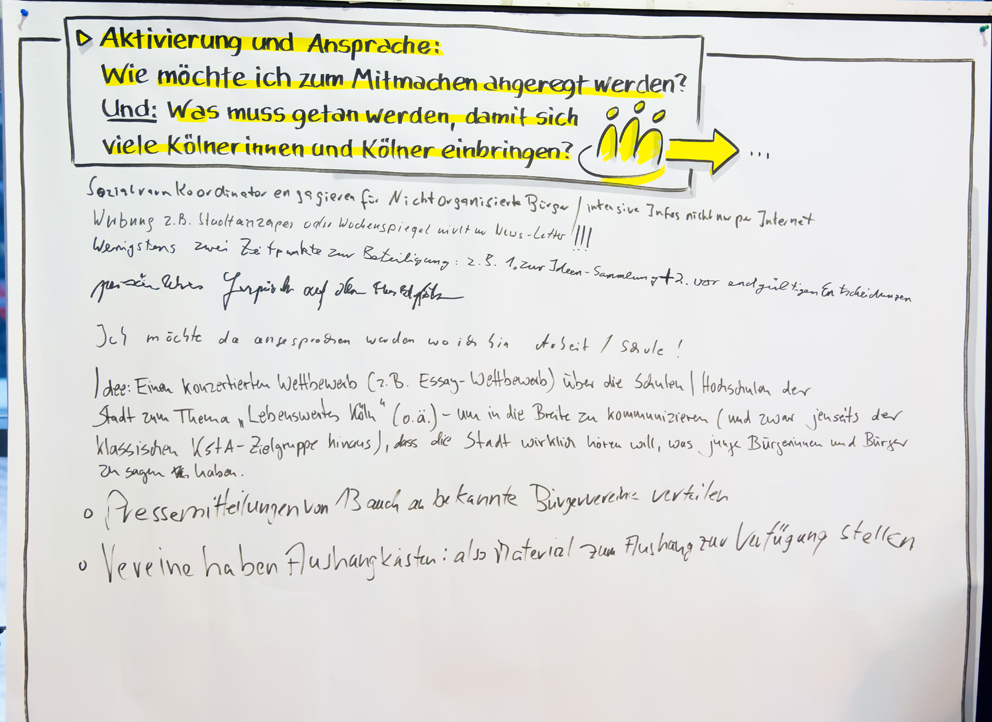 ▷ Aktivierung und Ansprache:
Wie möchte ich zum Mitmachen angeregt werden?
Und: Was muss getan werden, damit sich
viele Kölnerinnen und Kölner einbringen?
...
Sozialraum Koordinator engagieren für Nichtorganisierte Bürger / intensive Infos nicht nur per Internet
Werbung z.B. Stadtanzeiger oder Wochenspiegel nicht nur News-Letter !!!
Wenigstens zwei Zeitpunkte zur Beteiligung: z.B. 1. zur Ideen-Sammlung + 2. vor endgültigen Entscheidungen
auf dem
Ich möchte da angesprochen werden wo ich bin Arbeit / Schule!
Idee: Einen konzertierten Wettbewerb (z.B. Essay-Wettbewerb) über die Schulen / Hochschulen der
Stadt zum Thema „Lebenswertes Köln" (o.ä.) - um in die Breite zu kommunizieren (und zwar jenseits der
klassischen KStA-Zielgruppe hinaus), dass die Stadt wirklich hören will, was junge Bürgerinnen und Bürger
zu sagen haben.
o Pressemitteilungen von 13 auch an bekannte Bürgervereine verteilen
o Vereine haben Aushangkästen: also Material zum Aushang zur Verfügung stellen